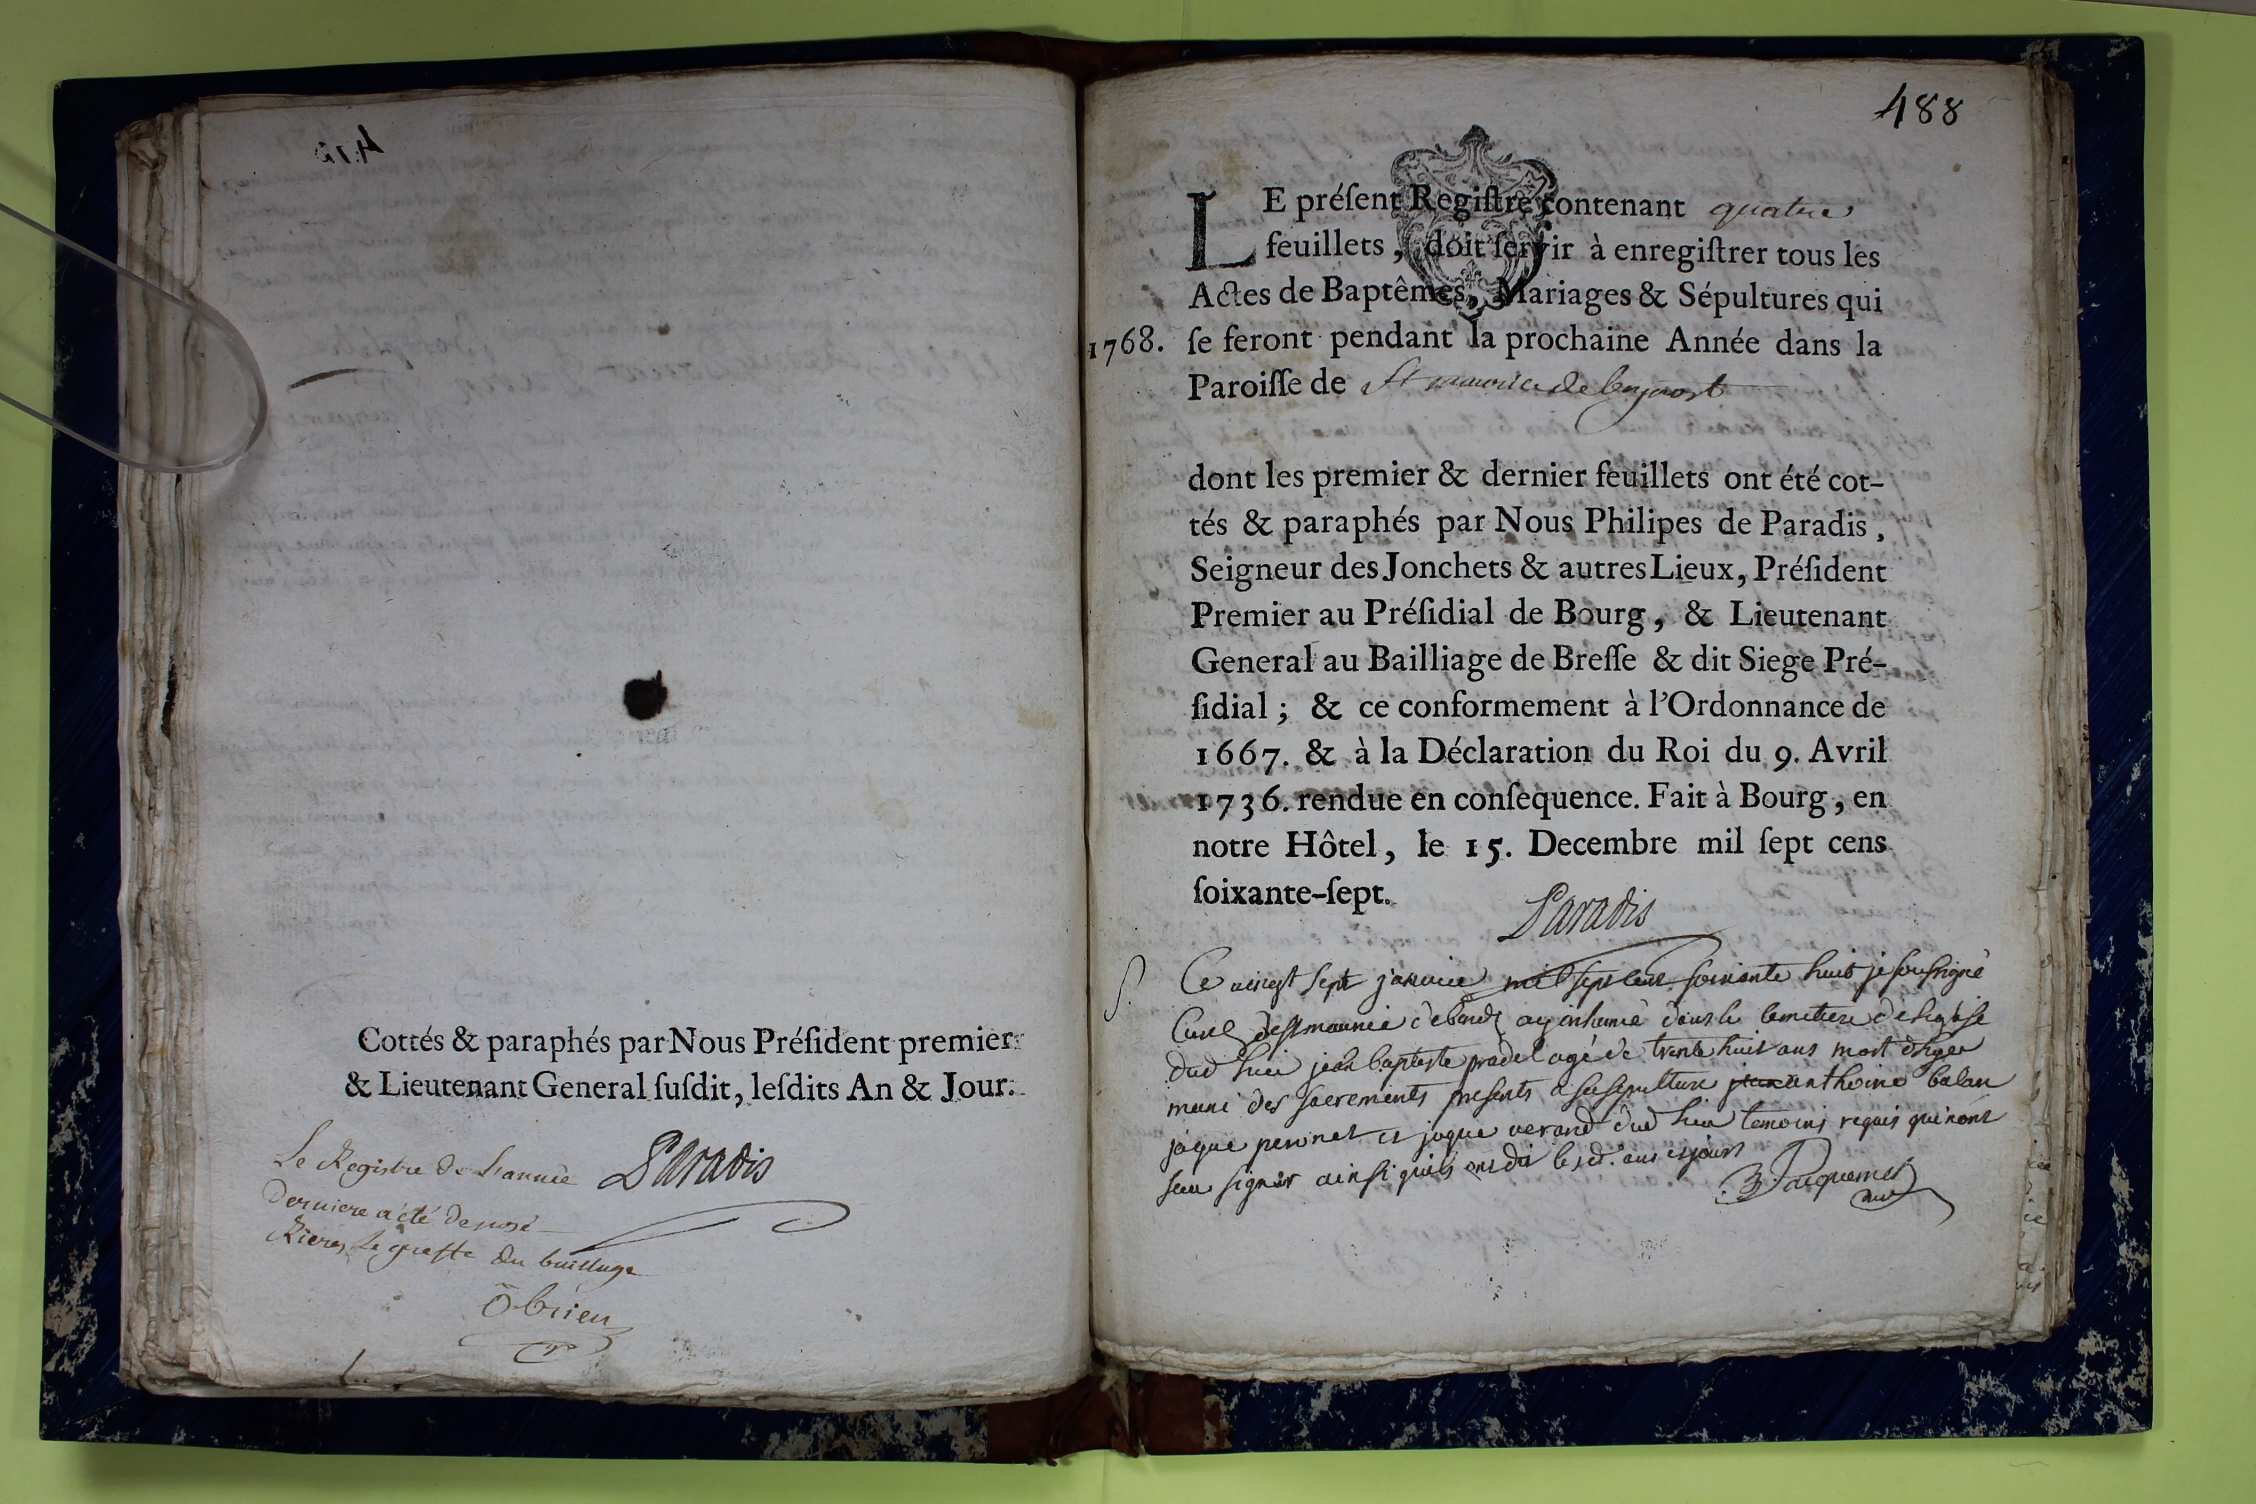 Cottés & paraphés par Nous Préſident premier
& Lieutenant General ſuſdit, leſdits An & Jour.
Le Registre de L'année
Paradis
Derniere a été deposé
Rieres le greffe du bailliage
Ôbrien
488
LE préſent Regiſtre contenant quatre
feuillets, doit ſervir à enregiſtrer tous les
Actes de Baptêmes, Mariages & Sépultures qui
1768. ſe feront pendant la prochaine Année dans la
Paroiſſe de St maurice de beynost
dont les premier & dernier feuillets ont été cot-
tés & paraphés par Nous Philipes de Paradis,
Seigneur des Jonchets & autres Lieux, Préſident
Premier au Préſidial de Bourg, & Lieutenant
General au Bailliage de Breſſe & dit Siege Pré-
ſidial ; & ce conformement à l'Ordonnance de
1667. & à la Déclaration du Roi du 9. Avril
1736. rendue en conſequence. Fait à Bourg, en
notre Hôtel, le 15. Decembre mil ſept cens
ſoixante-ſept.
Paradis
S. Ce vingt sept janvier mil sept cent soixante huit je soussigné
Curé de st maurice ay inhumé dans le cemetiere de l'eglise
dud lieu jean baptiste pradel agé de trente huit ans mort
muni des sacrements presents a sa sepulture anthoine balan
jaque peronet et jaque verand dud lieu temoins requis qui n'ont
sceu signer ainsi quils ont dit les d. ans et jours
Jacquemet